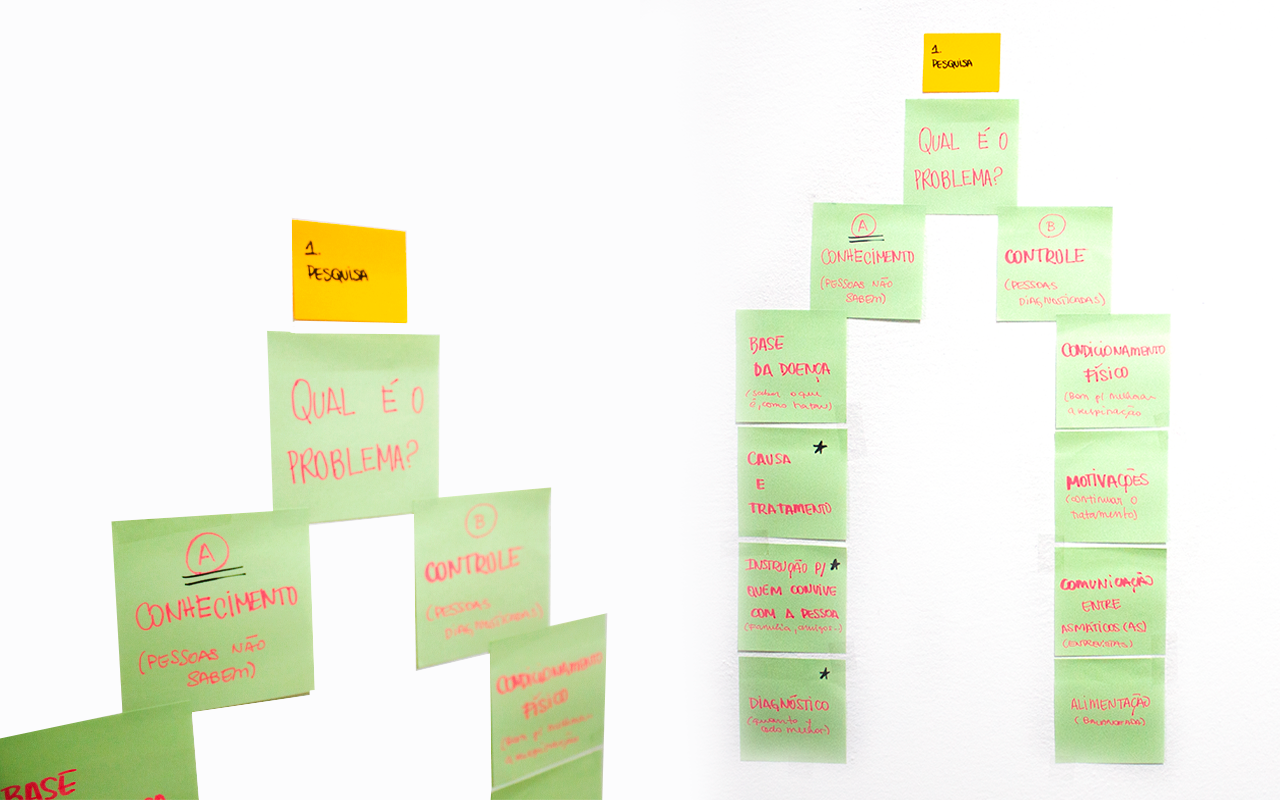 1.
PESQUISA
QUAL É O
PROBLEMA?
A
CONHECIMENTO
(PESSOAS NÃO
SABEM)
B
CONTROLE
(PESSOAS
DIAGNOSTICADAS)
CONDICIONAMENTO
FÍSICO
(Bom p/ melhorar
a respiração
BASE
1.
PESQUISA
QUAL É O
PROBLEMA?
A
CONHECIMENTO
(PESSOAS NÃO
SABEM)
B
CONTROLE
(PESSOAS
DIAGNOSTICADAS)
BASE
DA DOENÇA
(saber o que
é, como tratar)
CAUSA
E
TRATAMENTO
INSTRUÇÃO P/
QUEM CONVIVE
COM A PESSOA
(família, amigos..)
DIAGNÓSTICO
(quanto +
cedo melhor)
CONDICIONAMENTO
FÍSICO
(Bom p/ melhorar
a respiração
MOTIVAÇÕES
(continuar o
tratamento)
COMUNICAÇÃO
ENTRE
ASMÁTICOS(AS)
(ENTREVISTAS)
ALIMENTAÇÃO
(BALANCEADA)